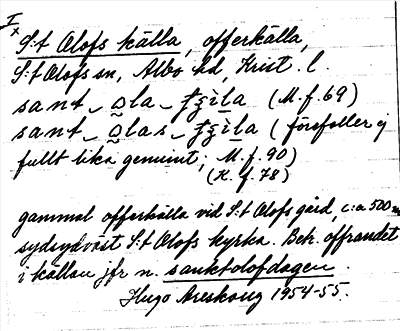 I
x
S:t Olofs källa, offerkälla,
S:t Olofs sn, Albo hd, Krist. l.
sant-ola- (M. f. 69)
sant-olas- (förefaller ej
fullt lika genuint; M. f. 90)
(K. f. 78)
gammal offerkälla vid S:t Olofs gård, c:a 500 m
sydsydväst S:t Olofs kyrka. Betr. offrandet
i källan jfr n. sanktolofdagen.
Hugo Areskoug 1954-55.